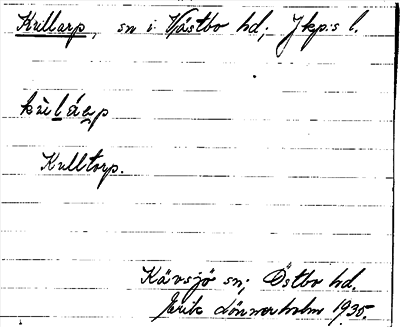 Kullarp, sn i Västbo hd, Jkp:s l.
kùlárp
Kulltorp.
Kävsjö sn, Östbo hd.
Erik Lönnerholm 1935.